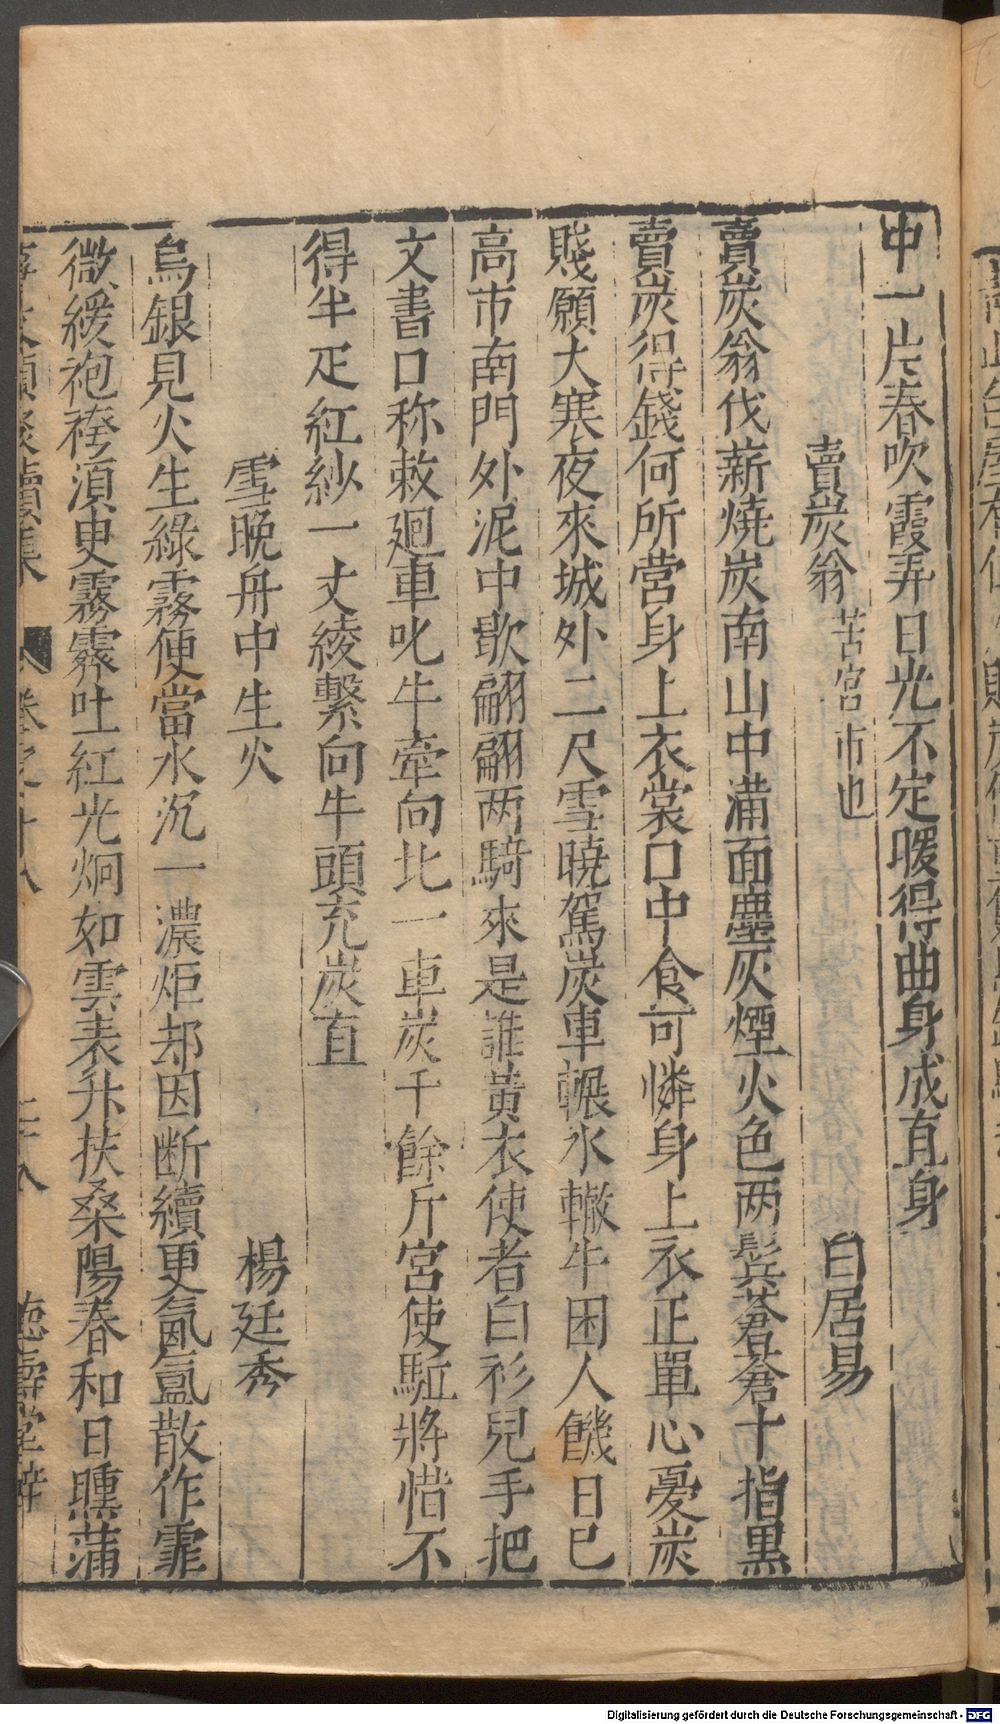 中一片春吹霞弄日光不定暖得曲身成直身
賣炭翁 苦宮市也 白居易
賣炭翁伐薪燒炭南山中滿面塵灰煙火色两鬂蒼蒼十指黒
賣炭得錢何所營身上衣裳口中食可憐身上衣正單心憂炭
賤願大寒夜來城外二尺雪曉駕炭車輾氷轍牛困人饑日已
高市南門外泥中歇翩翩两騎來是誰黃衣使者白衫兒手把
文書口称敕廻車叱牛牽向北一車炭千餘斤宮使駈將惜不
得半疋紅紗一丈綾繫向牛頭充炭直
雪晚舟中生火 楊廷秀
烏銀見火生綠霧便當水沉一濃炬却因断續更氤氳散作霏
微緩袍袴湏㬰霧霽吐紅光炯如雲表升扶桑陽春和日曛蒲
卷之十八
德壽堂梓
Digitalisierung gefördert durch die Deutsche Forschungsgemeinschaft - DFG